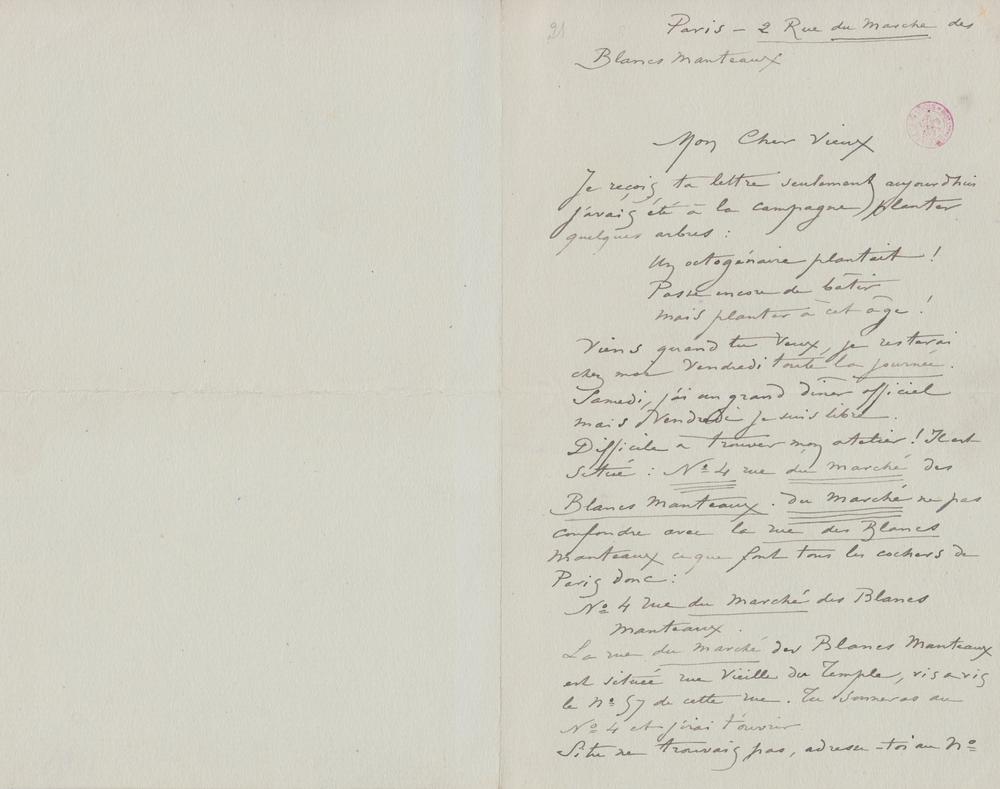 21
Paris – 2 Rue du Marché des
Blancs Manteaux
Mon Cher Vieux
Je reçois ta lettre seulement aujourdhui
j'avais été à la campagne planter
quelques arbres :
Un octogénaire plantait !
Passe encore de bâtir
mais planter à cet âge !
Viens quand tu veux, je resterai
chez moi Vendredi toute la journée.
Samedi, j'ai un grand dîner officiel
mais Vendredi je suis libre.
Difficile à trouver mon atelier ! Il est
situé : No 4 rue du Marché des
Blancs Manteaux. du Marché ne pas
confondre avec la rue des Blancs
Manteaux ce que font tous les cochers de
Paris donc :
No 4 rue du Marché des Blancs
Manteaux.
La rue du Marché des Blancs Manteaux
est située rue Vieille du Temple, vis à vis
le No 57 de cette rue. Tu sonneras au
No 4 et j'irai t'ouvrir
Si tu ne trouvais pas, adresse-toi au No